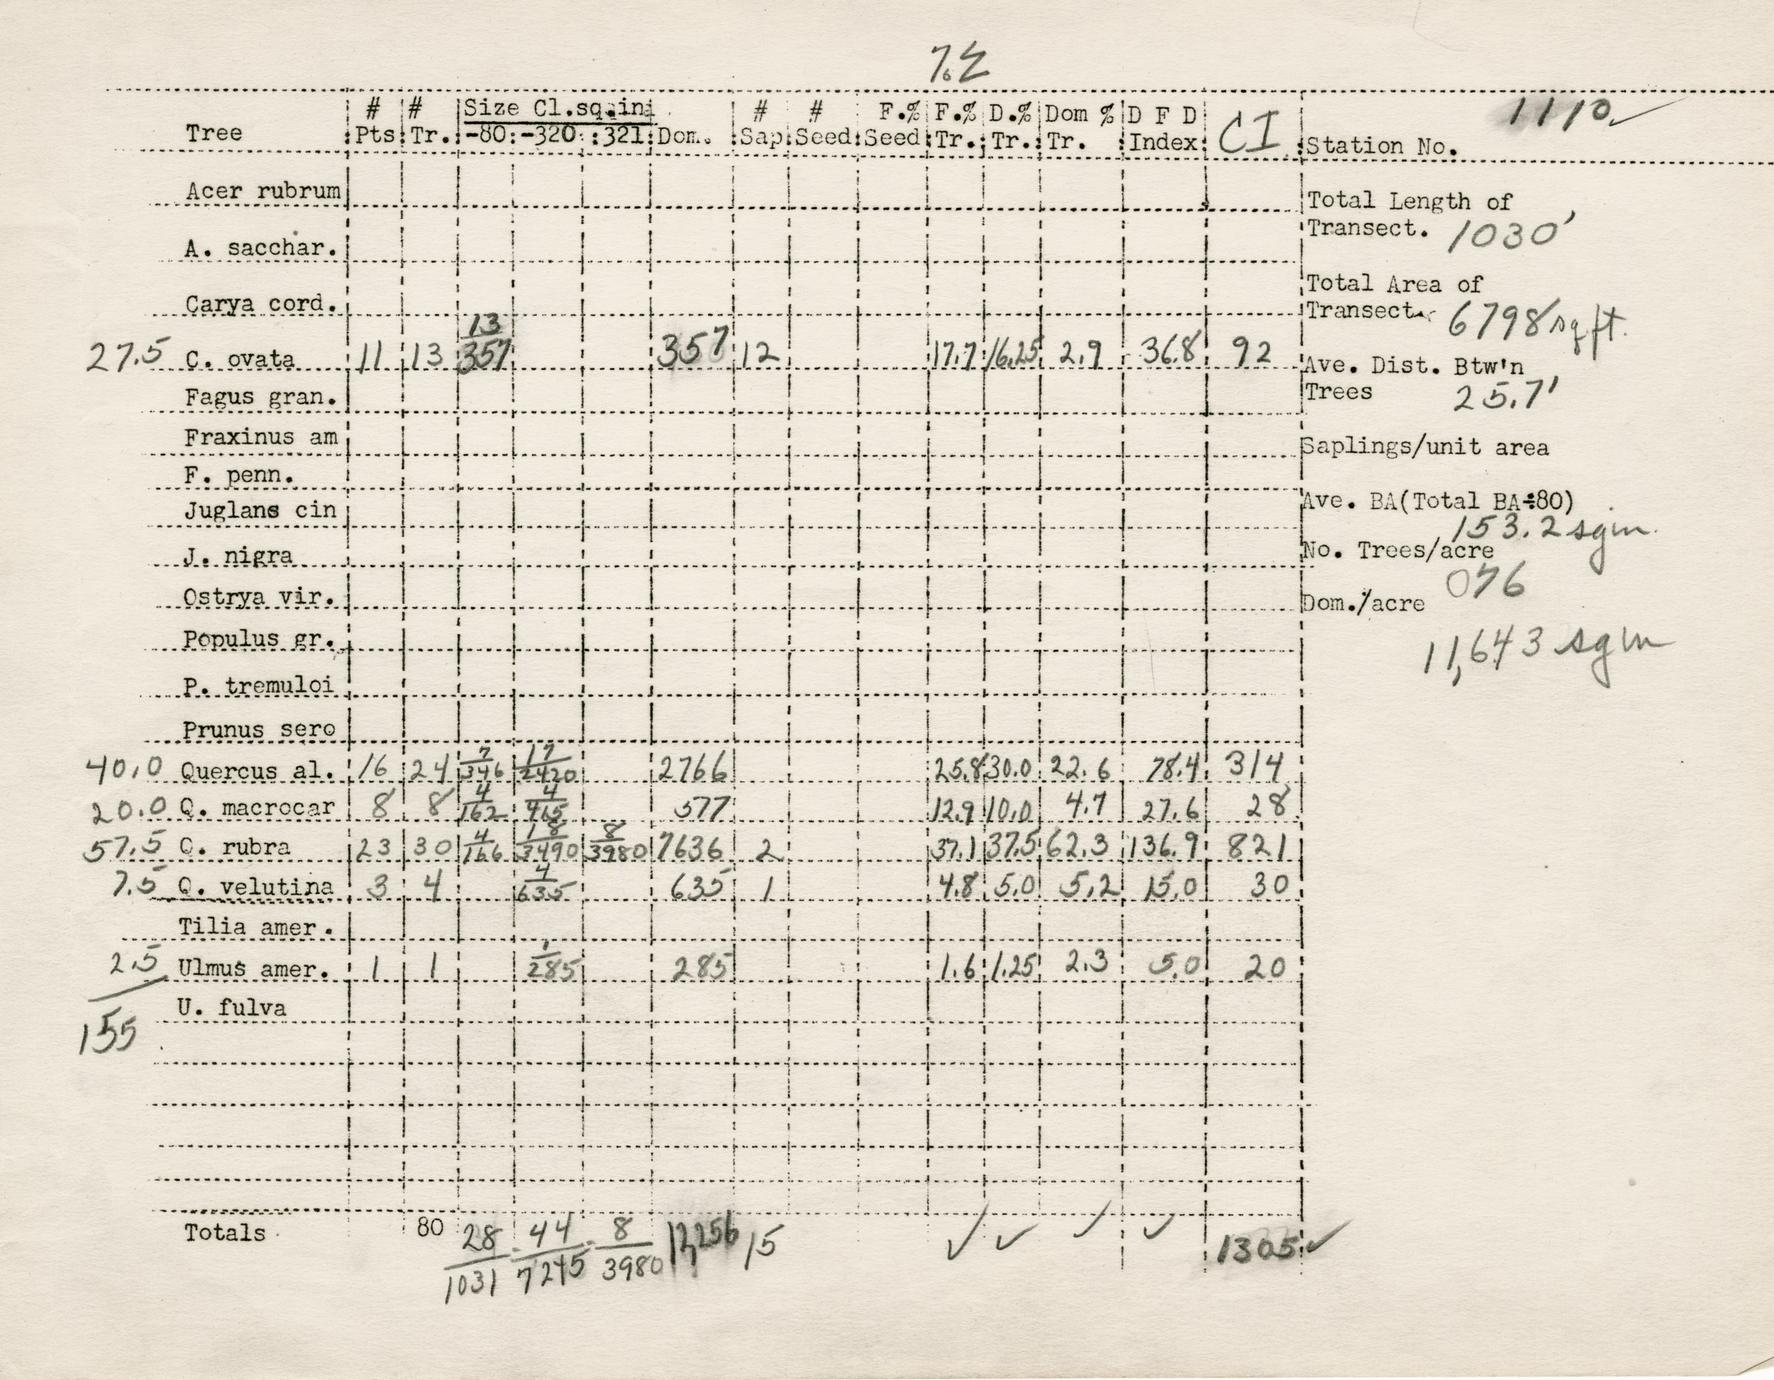 7.2
# # Size Cl.sq.in # # F.% F.% D.% Dom % D F D CI 1110 ✓
Tree Pts Tr. -80 -320 321 Dom. Sap Seed Seed Tr. Tr. Tr. Index Station No.
Acer rubrum
Total Length of
Transect. 1030'
A. sacchar.
Total Area of
Transect 6798 sq ft.
Carya cord.
27.5 C. ovata 11 13 13/357 357 12 17.7 16.25 2.9 36.8 92
Ave. Dist. Btw'n
Trees 25.7'
Fagus gran.
Fraxinus am
Saplings/unit area
F. penn.
Juglans cin
Ave. BA(Total BA÷80)
153.2 sq in.
J. nigra
No. Trees/acre
076
Ostrya vir.
Dom./acre
11,643 sq in
Populus gr.
P. tremuloi
Prunus sero
40.0 Quercus al. 16 24 7/346 17/2420 2766 25.8 30.0 22.6 78.4 314
20.0 Q. macrocar 8 8 4/162 4/415 577 12.9 10.0 4.7 27.6 28
57.5 Q. rubra 23 30 4/166 18/3490 8/3980 7636 2 37.1 37.5 62.3 136.9 821
7.5 Q. velutina 3 4 4/635 635 1 4.8 5.0 5.2 15.0 30
Tilia amer.
2.5 Ulmus amer. 1 1 1/285 285 1.6 1.25 2.3 5.0 20
U. fulva
155
Totals 80 28/1031 44/7245 8/3980 12,256 15 ✓ ✓ ✓ ✓ 1305 ✓